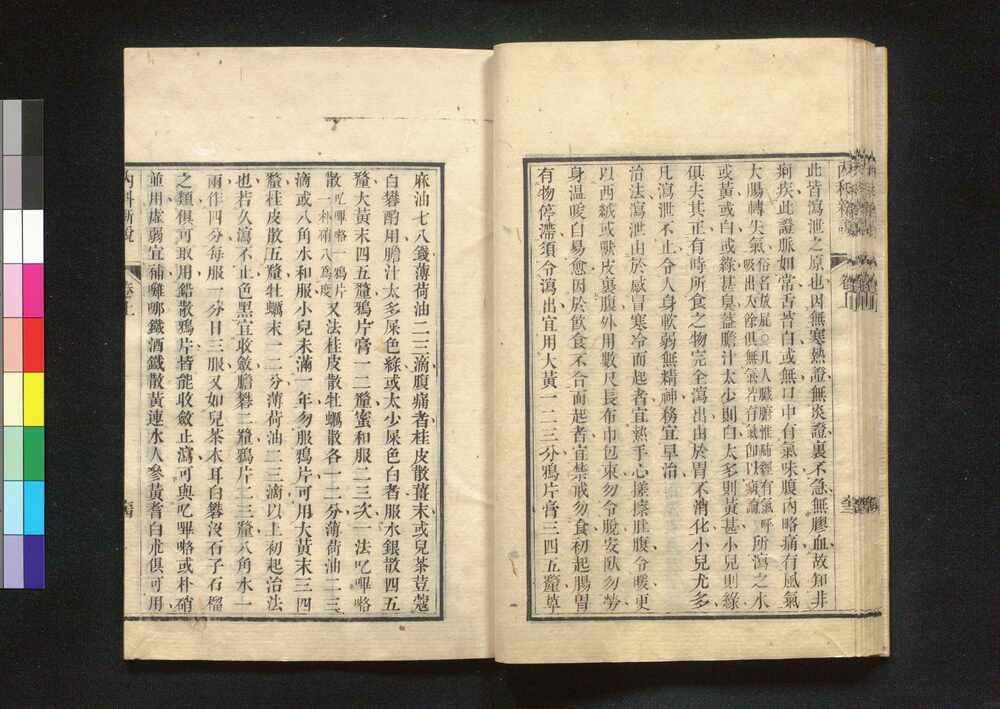 此皆瀉泄之原也因無寒熱證無炎證裏不急無膠血故知非
痢疾此證脈如常舌苔白或無口中有氣味腹內略痛有風氣
大腸轉失氣俗名放屁○凡人臟腑惟肺經有氣呼吸出入餘俱無氣若有氣卽以病論所瀉之水
或黃或白或綠甚臭蓋膽汁太少則白太多則黃甚小兒則綠
俱失其正有時所食之物完全瀉出由於胃不消化小兒尤多
凡瀉泄不止令人身軟弱無精神務宜早治
治法瀉泄由於感冒寒冷而起者宜熱手心搓擦肚腹令暖更
以西絨或獸皮裏腹外用數尺長布巾包束勿令脫安臥勿勞
身溫暖自易愈因於飲食不合而起者宜禁戒勿食初起腸胃
有物停滯須令瀉出宜用大黃一二三分鴉片膏三四五釐萆
麻油七八錢薄荷油二三滴腹痛者桂皮散薑末或兒茶荳蔻
白礬酌用膽汁太多屎色綠或太少屎色白者服水銀散四五
釐大黃末四五釐鴉片膏一二釐蜜和服二三次一法吃嗶咯
散吃嗶咯一鴉片一朴硝八爲度又法桂皮散牡蠣散各一二分薄荷油二三
滴或八角水和服小兒未滿一年勿服鴉片可用大黃末三四
釐桂皮散五釐牡蠣末一二分薄荷油二三滴以上初起治法
也若久瀉不止色黑宜收斂膽礬二釐鴉片二三釐八角水一
兩作四分每服一分日三服又如兒茶木耳白礬沒石子石榴
之類俱可取用鉛散鴉片皆能收斂止瀉可與吃嗶咯或朴硝
並用虛弱宜補雞哪鐵酒鐵散黃連水人參黃耆白朮俱可用
內科新說
卷上